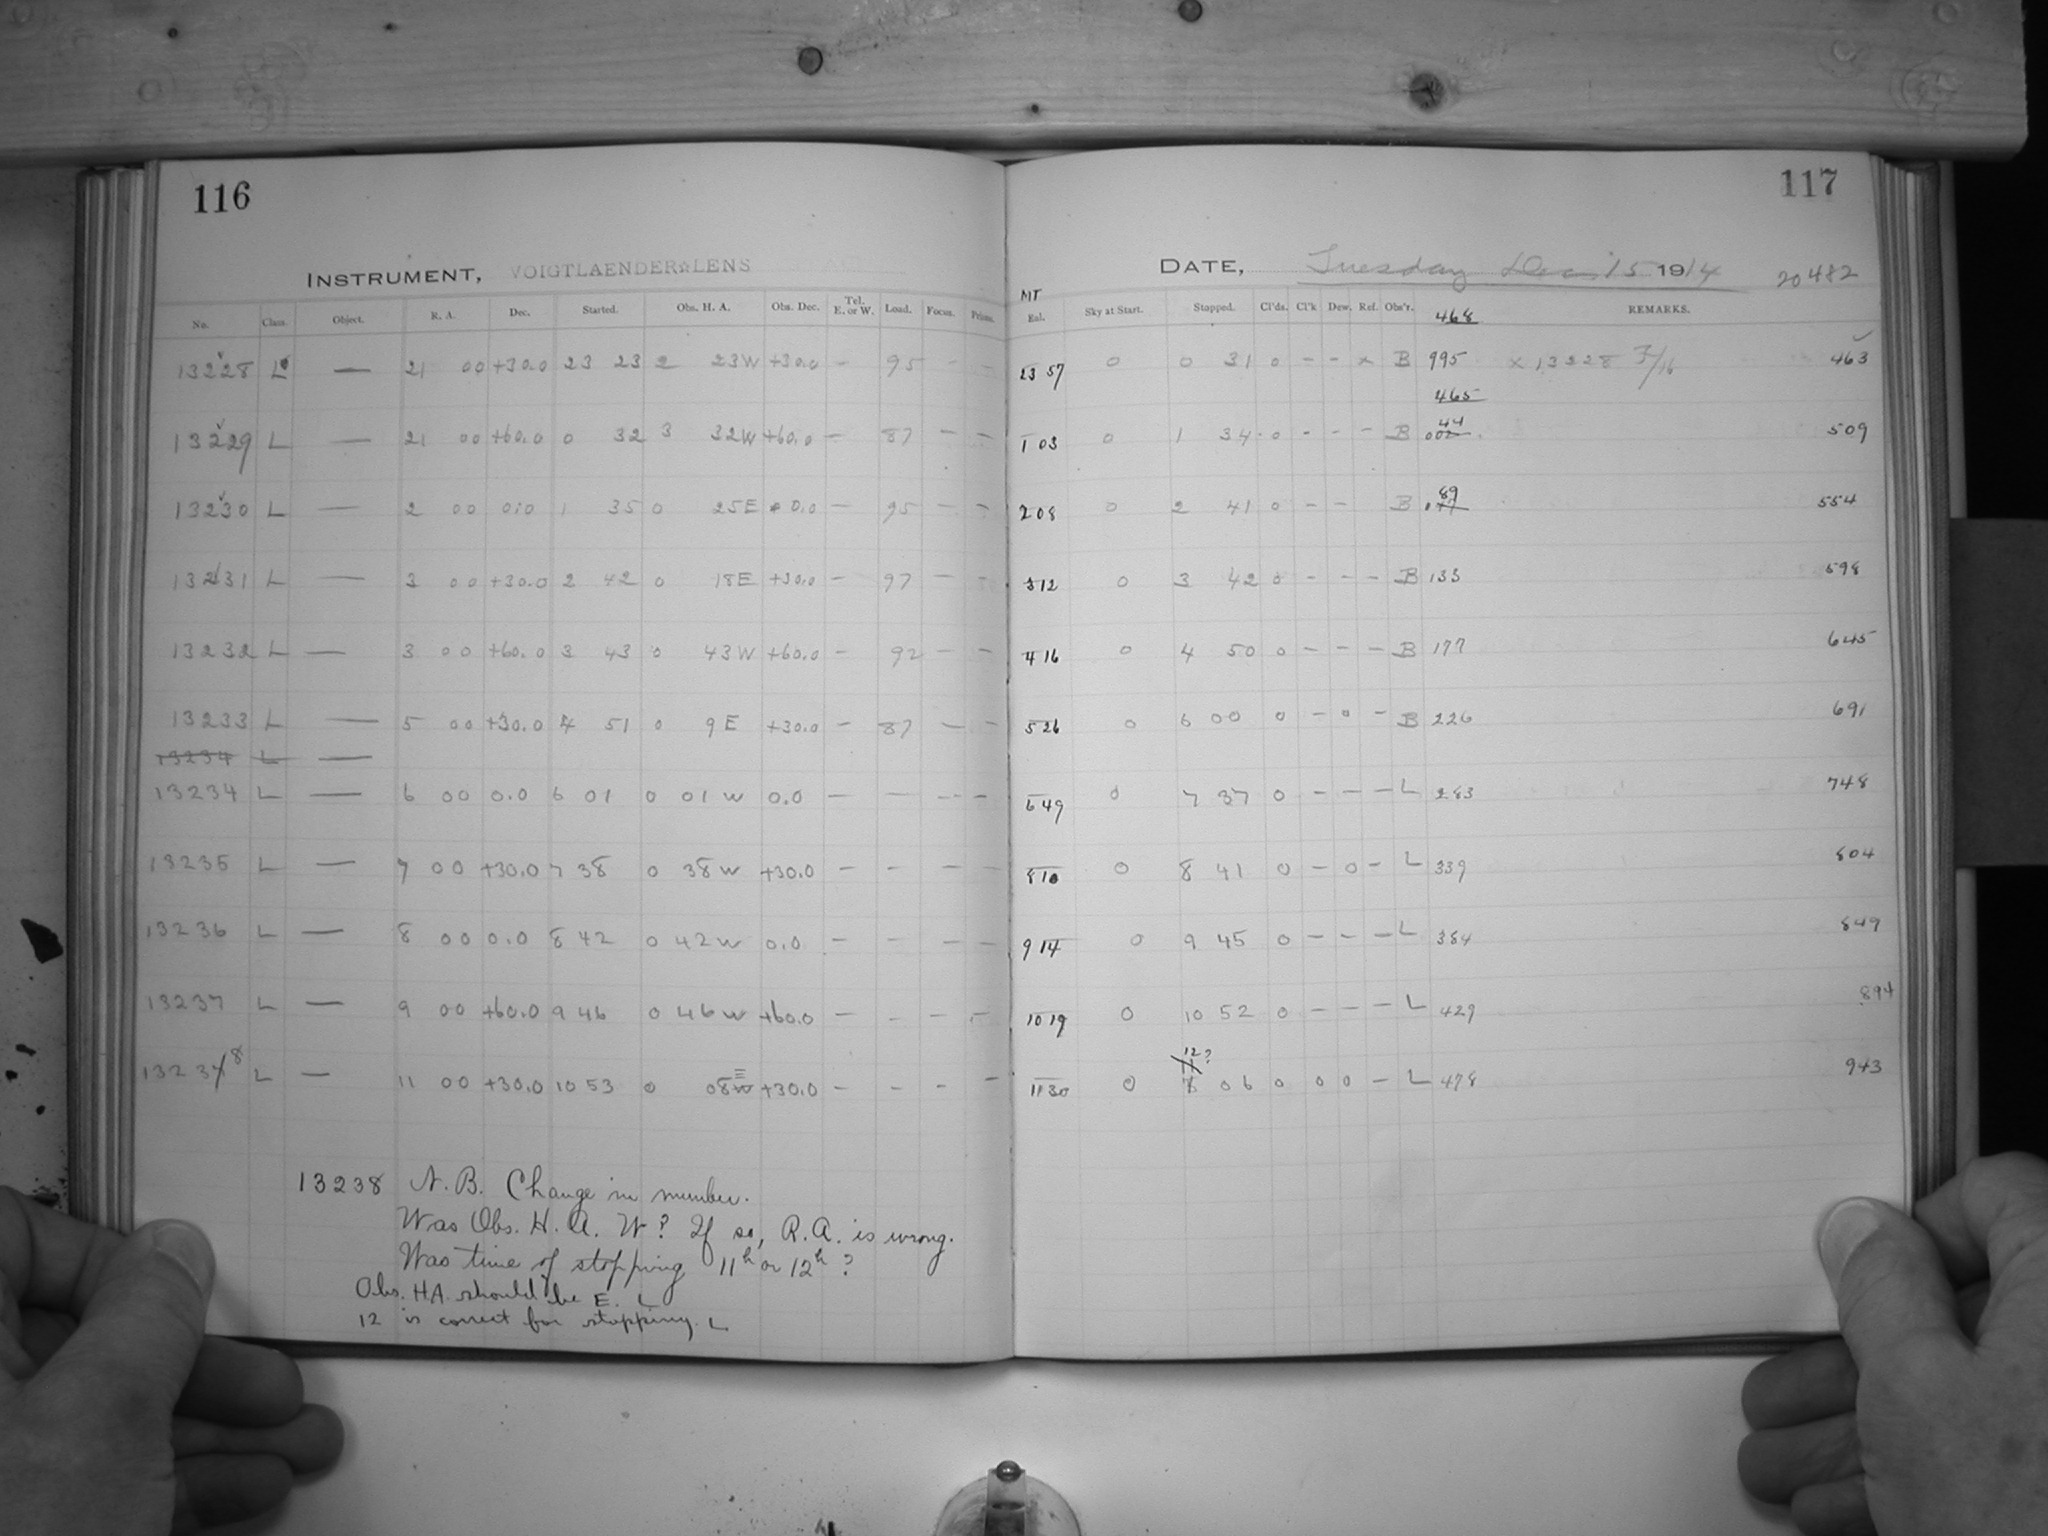 116
117
INSTRUMENT, VOIGTLAENDER LENS
DATE, Tuesday Dec 15 1914 20482
No. Class. Object. R. A. Dec. Started. Obs. H. A. Obs. Dec. Tel. E. or W. Load. Focus. Prisms. MT Eal. Sky at Start. Stopped. Cl'ds. Cl'k Dew. Ref. Obs'r. 468 REMARKS.
13228 L — 21 00 +30.0 23 23 2 23W +30.0 — 95 — — 23 57 0 0 31 0 — — x B 995 x 13228 3/16 463
465
13229 L — 21 00 +60.0 0 32 3 32W +60.0 — 87 — — 1 03 0 1 34 0 — — — B 44 509
13230 L — 2 00 0.0 1 35 0 25E 0.0 — 95 — — 2 08 0 2 41 0 — — B 89 554
13231 L — 3 00 +30.0 2 42 0 18E +30.0 — 97 — — 3 12 0 3 42 0 — — — B 133 598
13232 L — 3 00 +60.0 3 43 0 43W +60.0 — 92 — — 4 16 0 4 50 0 — — — B 177 645
13233 L — 5 00 +30.0 4 51 0 9E +30.0 — 87 — — 5 26 0 6 00 0 — 0 — B 226 691
13234 L —
13234 L — 6 00 0.0 6 01 0 01W 0.0 — — — — 6 49 0 7 37 0 — — — L 283 748
13235 L — 7 00 +30.0 7 38 0 38W +30.0 — — — — 8 10 0 8 41 0 — 0 — L 339 804
13236 L — 8 00 0.0 8 42 0 42W 0.0 — — — — 9 14 0 9 45 0 — — — L 384 849
13237 L — 9 00 +60.0 9 46 0 46W +60.0 — — — — 10 19 0 10 52 0 — — — L 429 894
12?
13238 L — 11 00 +30.0 10 53 0 08W +30.0 — — — — 11 30 0 06 0 0 0 — L 478 943
13238 N.B. Change in number.
Was Obs. H.A. W? If so, R.A. is wrong.
Was time of stopping 11h or 12h?
Obs. HA should be E. L
12 is correct for stopping. L